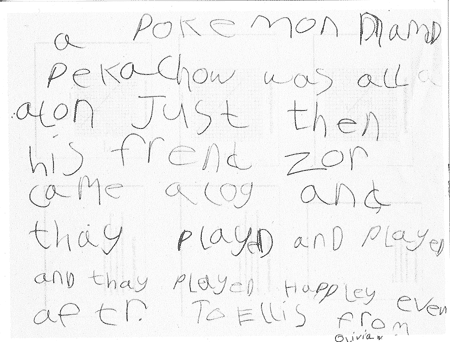 a POKEMON NAMD
PeKachow was all a
alon Just then
his frend zor
came alog and
thay PlayeD and PlayeD
and thay PlayeD HaPPley even
after. To Ellis from
Olivia